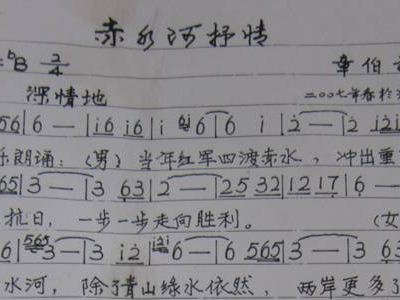 赤水河抒情
=♭B 2/4 章伯
深情地 二〇〇七年春於
56 | 6 — | i6 i6 | i 6 | 6 i | 2 — | 2 i2i
乐朗诵：（男）当年红军四渡赤水，冲出重
65 | 3 — | 3 63 | 2 — | 25 32 | 12 17 | 6 —
抗日，一步一步走向胜利。（女
6 | 565 3 — | 3 i2 | i2i 6 — | 6 565 | 3 — | 3 63
水河，除了青山绿水依然，两岸更多了